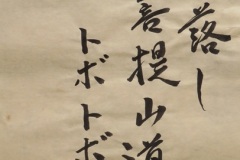 落し
菩提山道
トボトボ